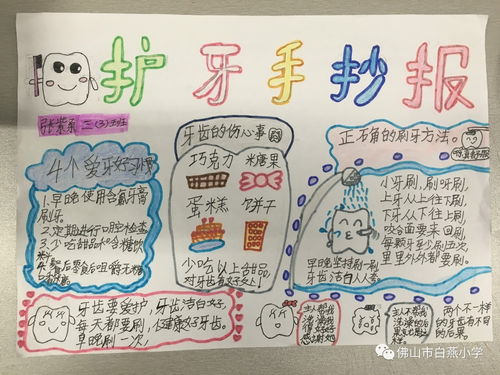 护牙手抄报
三(3)班
4个爱牙好习惯
1.早晚使用含氟牙膏
刷牙
2.定期进行口腔检查
3.少吃甜品不喝糖饮
料
牙齿的伤心事
巧克力 米糖果
蛋糕 饼干
少吃以上甜品
对牙齿有好处!
正确的刷牙方法。
小牙刷,刷呀刷,
上牙从上往下刷,
下牙从下往上刷,
咬合面要来回刷,
每颗牙至少刷五次
里里外外都要刷。
早晚坚持刷一刷
牙齿洁白人人夸
牙齿要爱护,牙齿洁白好,
每天都要刷,健康好牙齿。
早晚刷一次,
主人帮我
主人不帮我
两个不一样
的牙齿有不同
的后果。
佛山市白燕小学